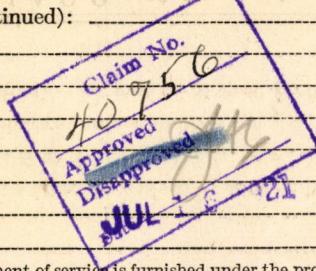 tinued):
Claim No.
40756
Approved
Disapproved
JUL 1 '21
ment of service is furnished under the pro